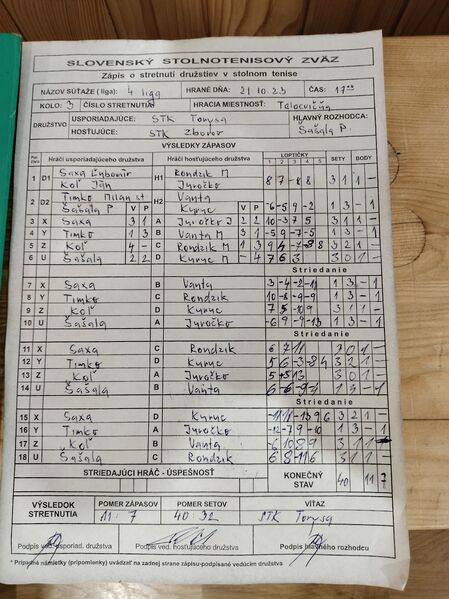 SLOVENSKÝ STOLNOTENISOVÝ ZVÄZ
Zápis o stretnutí družstiev v stolnom tenise
NÁZOV SÚŤAŽE ( liga): 4 liga HRANÉ DŇA: 21 10 23 ČAS: 17
KOLO: 3 ČÍSLO STRETNUTIA HRACIA MIESTNOSŤ: Telocvičňa
DRUŽSTVO USPORIADAJÚCE: STK Torysa HLAVNÝ ROZHODCA:
HOSŤUJÚCE: STK Zborov Šašala P.
VÝSLEDKY ZÁPASOV
Hráči usporiadajúceho družstva Hráči hosťujúceho družstva LOPTIČKY SETY BODY
1 2 3 4 5
1 D1 Saxa Ľubomír H1 Rondzik M 8 7 -8 8 3 1 1 -
Koľ Ján Juročko
2 D2 Timko Milan st H2 Vanta
Šašala P V P Kuruc V P -6 -5 -9 -2
3 X Saxa 3 1 A Juročko J 2 2 10 -3 7 5 3 1 1 -
4 Y Timko 1 3 B Vanta M 3 1 -5 9 -7 -5 1 3 - 1
5 Z Koľ 4 - C Rondzik M 1 3 9 4 -7 -8 8 3 2 1 -
6 U Šašala 2 2 D Kuruc M - 4 7 6 3 3 0 1 -
Striedanie
7 X Saxa B Vanta 3 -4 -2 -11 1 3 - 1
8 Y Timko C Rondzik 10 -8 -9 -9 1 3 - 1
9 Z Koľ D Kuruc 7 5 10 9
10 U Šašala A Juročko -6 9 -9 -13 1 3 - 1
Striedanie
11 X Saxa C Rondzik 6 7 11 3 0 1 -
12 Y Timko D Kuruc 5 6 -3 8 4
13 Z Koľ A Juročko
14 U Šašala B Vanta 1 3 - 1
Striedanie
15 X Saxa D Kuruc 3 2 1 -
16 Y Timko A Juročko -12 -7 9 -10 1 3 - 1
17 Z Koľ B Vanta 3 1 1
18 U Šašala C Rondzik 6 8 -11 6 3 1 1 -
STRIEDAJÚCI HRÁČ - ÚSPEŠNOSŤ KONEČNÝ STAV 40 11 7
VÝSLEDOK STRETNUTIA POMER ZÁPASOV POMER SETOV VÍŤAZ
11 : 7 40 : 32 STK Torysa
Podpis ved. usporiad. družstva Podpis ved. hosťujúceho družstva Podpis hlavného rozhodcu
* Prípadné námietky (pripomienky) uvádzať na zadnej strane zápisu-podpísané vedúcim družstva